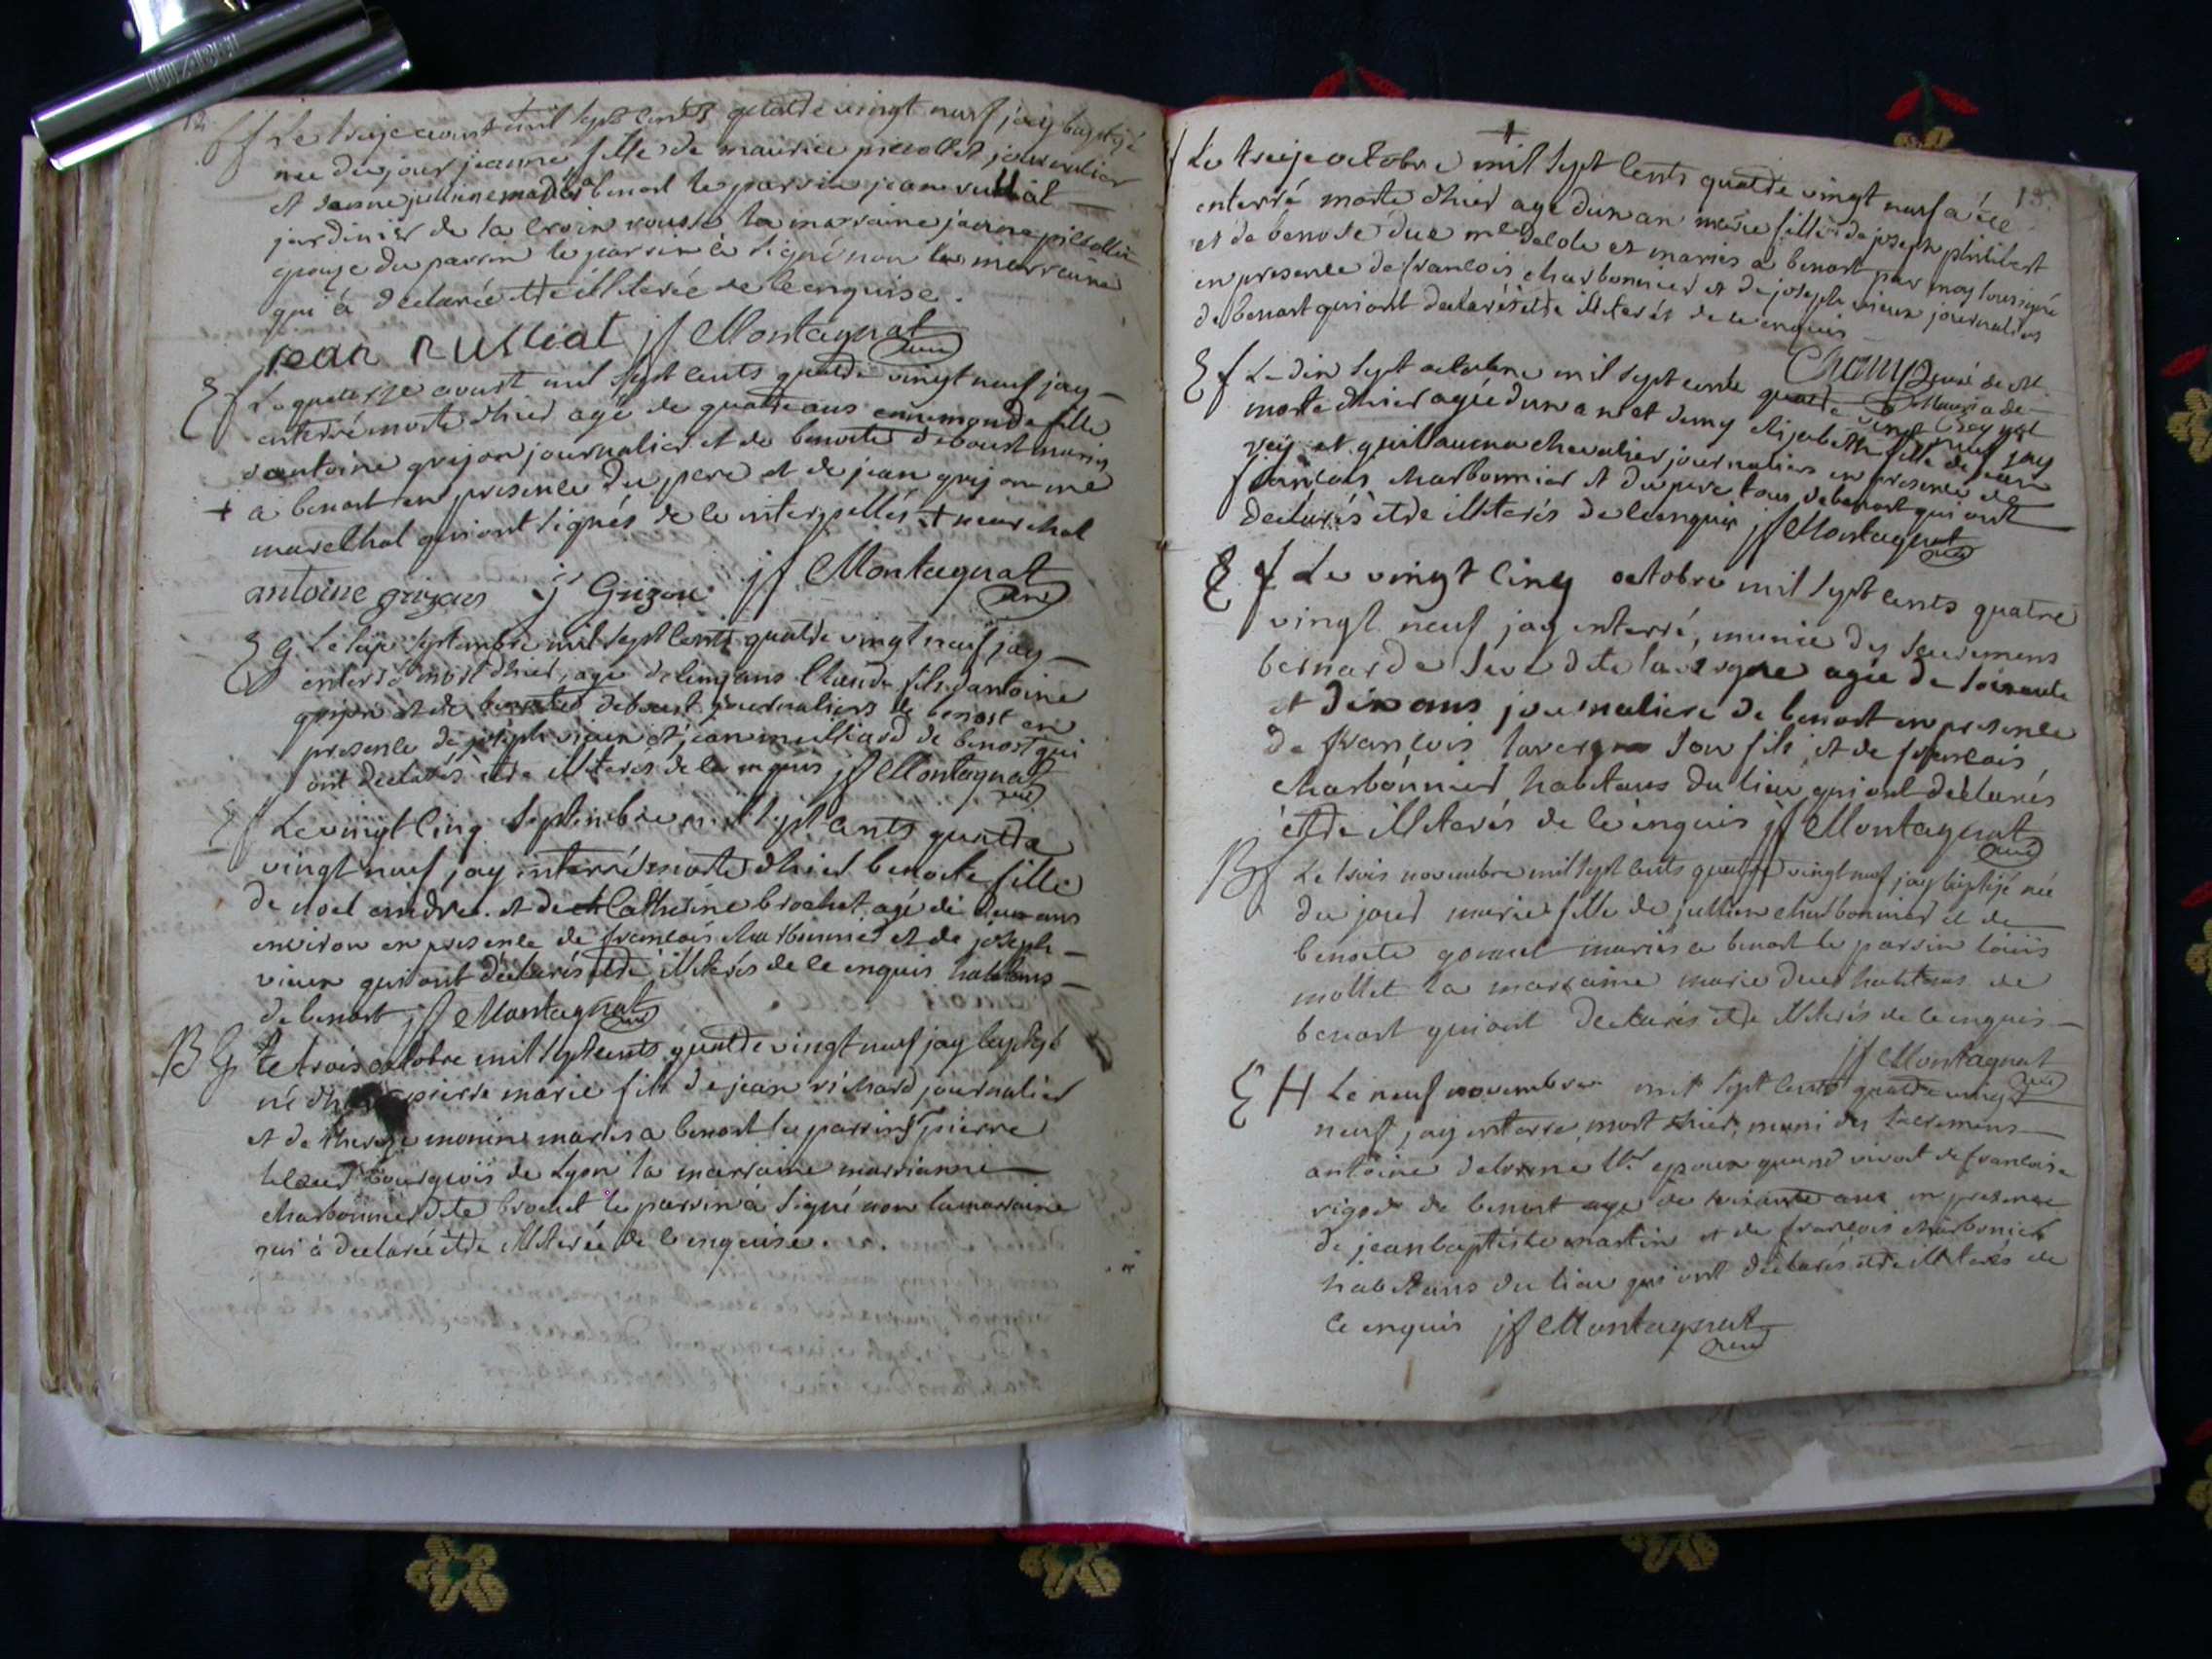 Bf Le treize aoust mil sept cents quatre vingt neuf jay baptizé
née du jour jeanne fille de maurice picollet journalier
et jeanne julline mariés a benost le parrin jean rulliat
jardinier de la croix rousse la marraine jeanne
epouze du parrin le parrin à signé non la marraine
qui à declarée etre illiterée de ce enquise.
jean rulliat jf Montagnat curé
Ef Le quatorze aoust mil sept cents quatre vingt neuf jay
enterré morte d'hier agé de quatre ans ennemonde fille
d'antoine grizon journalier et de benoite deboust mariés
+ a benost en presence du pere et de jean grizon me
marechal qui ont signés de ce interpellés + marechal
antoine grizon j Grizon jf Montagnat curé
E G Le six septembre mil sept cents quatre vingt neuf jay
enterré mort d'hier, agé de cinq ans Claude fils d'antoine
grizon et de benoite deboust journaliers de benost en
presence de joseph vieux et jean mulliard de benost qui
ont declarés etre illiterés de ce enquis jf Montagnat curé
Ef Le vingt cinq septembre mil sept cents quatre
vingt neuf jay interré morte d'hier benoite fille
de noel andre et de Catherine brochet agé de deux ans
environ en presence de francois charbonnier et de joseph
vieux qui ont declarés etre illiterés de ce enquis habitans
de benost jf Montagnat curé
B G Le trois octobre mil sept cents quatre vingt neuf jay baptizé
né pierre marie fils de jean richard journalier
et de therese monin mariés a benost le parrin pierre
bourgeois de Lyon la marraine marrianne
charbonnier dite brochet le parrin à signé non la marraine
qui à declarée etre illiterée de ce enquise.
+
13.
f Le treize octobre mil sept cents quatre vingt neuf a été
enterré morte d'hier agé d'un an marie fille de joseph philibert
et de benoite duc mariés a benost par moy soussigné
en presence de francois charbonnier et de joseph vieux journaliers
de benost qui ont declarés etre illiterés de ce enquis
Champ curé de st
Ef Le dix sept octobre mil sept cents quatre vingt neuf jay
morte d'hier agée d'un an et demy elizabeth fille de jean
rey et guillauma chevalier journaliers en presence de
francois charbonnier et du pere tous de benost qui ont
declarés etre illiterés de ce enquis jf Montagnat curé
E f Le vingt cinq octobre mil sept cents quatre
vingt neuf jay interré, munie des sacremens
bernarde seve dite lavergne agée de soixante
et dix ans journaliere de benost en presence
de francois lavergne son fils, et de francois
charbonnier habitans du lieu qui ont declarés
etre illiterés de ce enquis jf Montagnat curé
Bf Le trois novembre mil sept cents quatre vingt neuf jay baptizé née
du jour marie fille de jullien charbonnier et de
benoite gonnet mariés a benost le parrin louis
mollet la marraine marie duc habitans de
benost qui ont declarés etre illiterés de ce enquis
jf Montagnat curé
E H Le neuf novembre mil sept cents quatre vingt
neuf, jay enterré, mort d'hier, muni des sacremens
antoine delorme epoux quand vivoit de francoise
rigod de benost agé de soixante ans en presence
de jean baptiste martin et de francois charbonier
habitans du lieu qui ont declarés etre illiterés de
ce enquis jf Montagnat curé